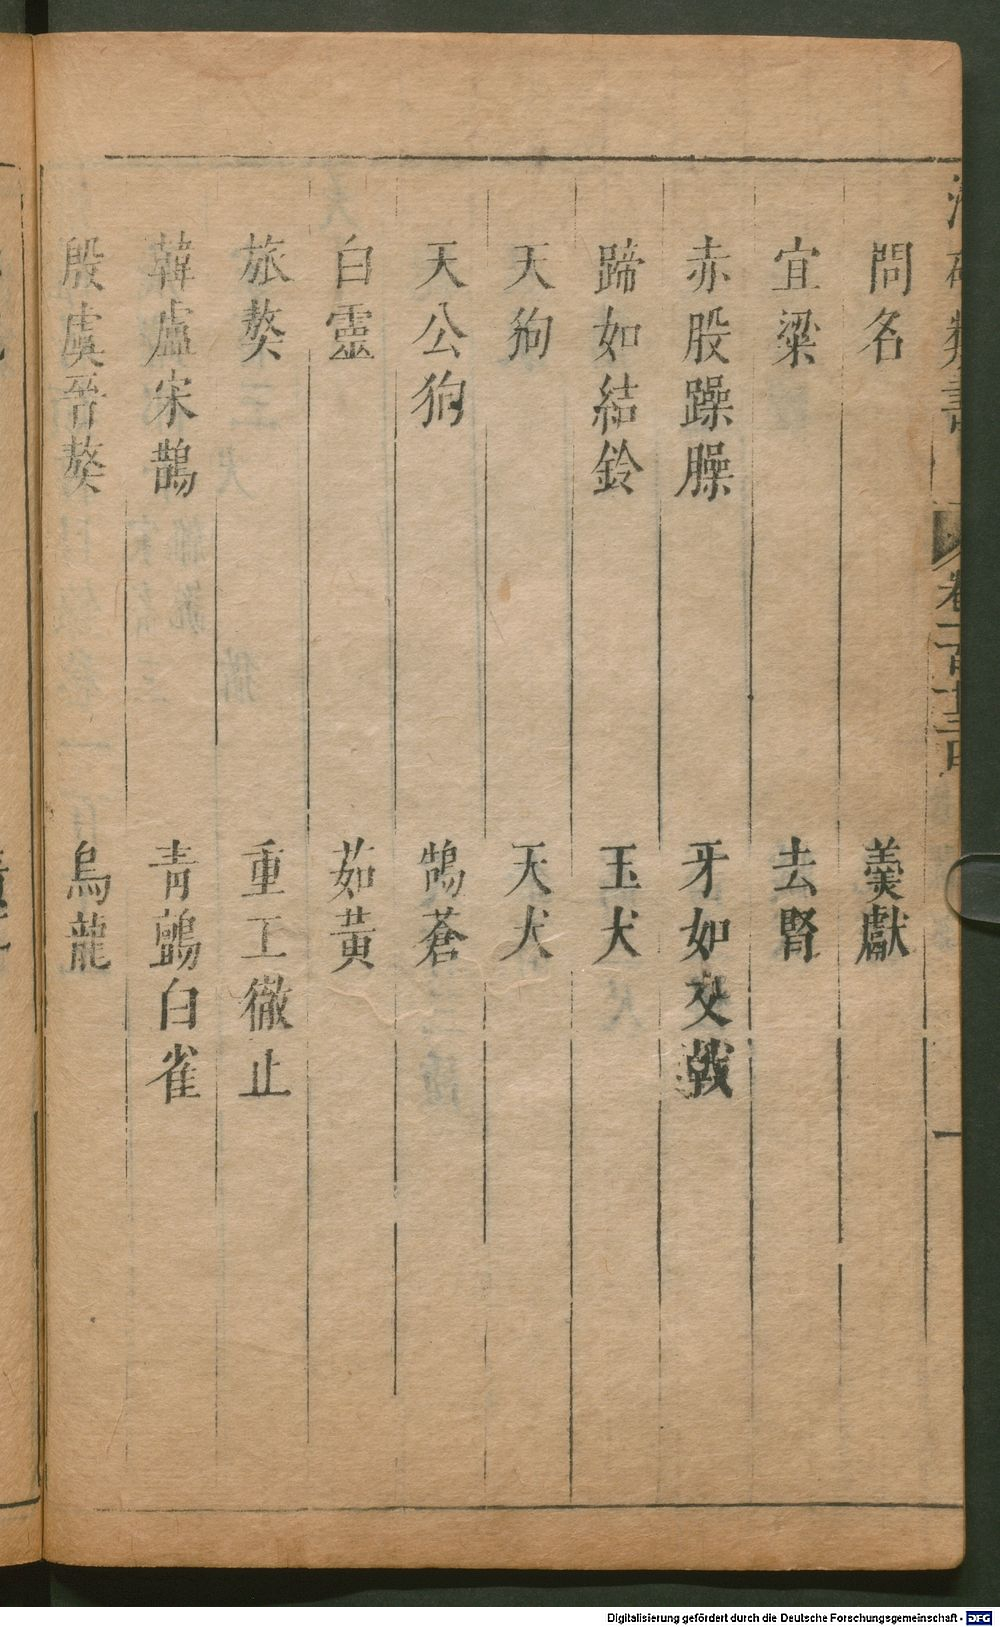 潛確類書 卷一百十三目 一
問名 羹獻
宜粱 去腎
赤股躁臊 牙如交戟
蹄如結鈴 玉犬
天狗 天犬
天公狗 鵠蒼
白靈 茹黃
旅獒 重工徹止
韓盧宋鵲 青鸇白雀
殷虞晉獒 烏龍
Digitalisierung gefördert durch die Deutsche Forschungsgemeinschaft - DFG